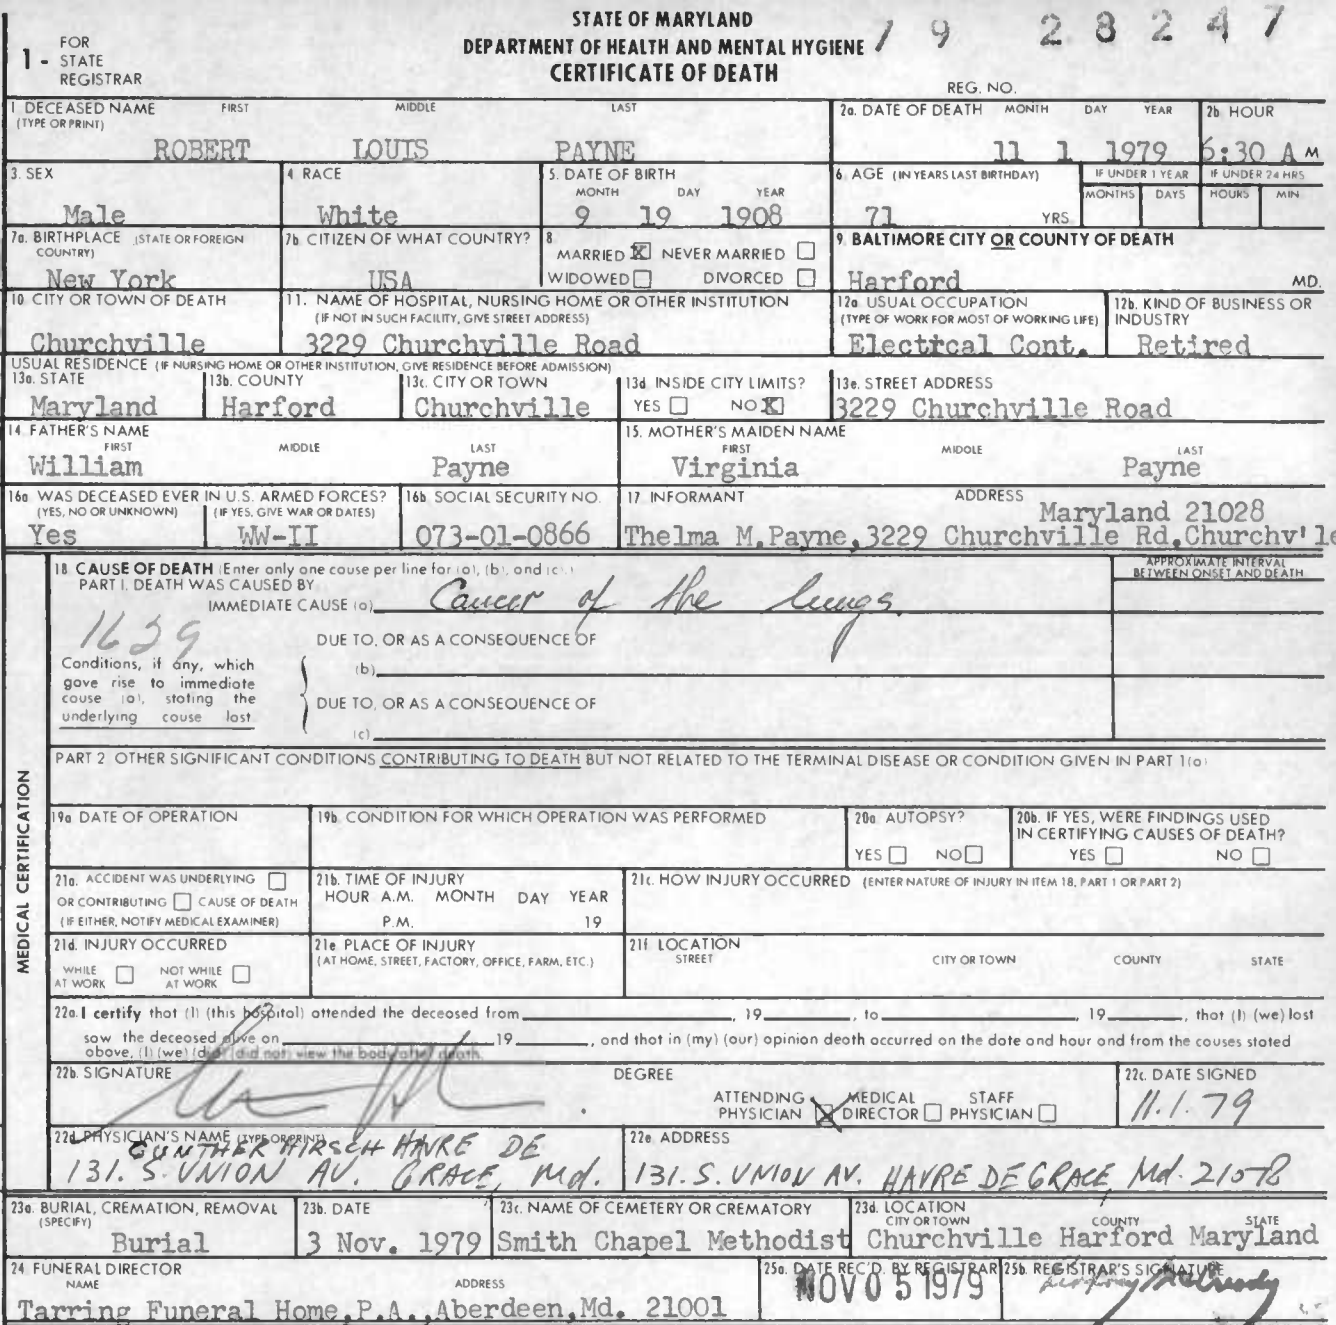 STATE OF MARYLAND
DEPARTMENT OF HEALTH AND MENTAL HYGIENE
CERTIFICATE OF DEATH
79 28247
REG. NO.
1- FOR STATE REGISTRAR
1 DECEASED NAME (TYPE OR PRINT) FIRST MIDDLE LAST
ROBERT LOUIS PAYNE
2a. DATE OF DEATH MONTH DAY YEAR
11 1 1979
2b HOUR
6:30 A M
3. SEX
Male
4 RACE
White
5. DATE OF BIRTH MONTH DAY YEAR
9 19 1908
6. AGE (IN YEARS LAST BIRTHDAY)
71 YRS
IF UNDER 1 YEAR MONTHS DAYS
IF UNDER 24 HRS HOURS MIN
7a. BIRTHPLACE (STATE OR FOREIGN COUNTRY)
New York
7b CITIZEN OF WHAT COUNTRY?
USA
8 MARRIED X NEVER MARRIED
WIDOWED DIVORCED
9. BALTIMORE CITY OR COUNTY OF DEATH
Harford MD.
10 CITY OR TOWN OF DEATH
Churchville
11. NAME OF HOSPITAL, NURSING HOME OR OTHER INSTITUTION
(IF NOT IN SUCH FACILITY, GIVE STREET ADDRESS)
3229 Churchville Road
12a USUAL OCCUPATION
(TYPE OF WORK FOR MOST OF WORKING LIFE)
Electrcal Cont.
12b. KIND OF BUSINESS OR INDUSTRY
Retired
USUAL RESIDENCE (IF NURSING HOME OR OTHER INSTITUTION, GIVE RESIDENCE BEFORE ADMISSION)
13a. STATE
Maryland
13b. COUNTY
Harford
13c. CITY OR TOWN
Churchville
13d INSIDE CITY LIMITS?
YES NO X
13e. STREET ADDRESS
3229 Churchville Road
14 FATHER'S NAME FIRST MIDDLE LAST
William Payne
15. MOTHER'S MAIDEN NAME FIRST MIDDLE LAST
Virginia Payne
16a WAS DECEASED EVER IN U.S. ARMED FORCES?
(YES, NO OR UNKNOWN) (IF YES, GIVE WAR OR DATES)
Yes WW-II
16b SOCIAL SECURITY NO.
073-01-0866
17 INFORMANT ADDRESS
Maryland 21028
Thelma M.Payne,3229 Churchville Rd.Churchv'le
MEDICAL CERTIFICATION
18 CAUSE OF DEATH (Enter only one cause per line for (a), (b), and (c).)
APPROXIMATE INTERVAL BETWEEN ONSET AND DEATH
PART I. DEATH WAS CAUSED BY
IMMEDIATE CAUSE (a) Cancer of the lungs.
1629
DUE TO, OR AS A CONSEQUENCE OF
(b)
Conditions, if any, which
gave rise to immediate
cause (a), stating the
underlying cause last
DUE TO, OR AS A CONSEQUENCE OF
(c)
PART 2 OTHER SIGNIFICANT CONDITIONS CONTRIBUTING TO DEATH BUT NOT RELATED TO THE TERMINAL DISEASE OR CONDITION GIVEN IN PART 1(a)
19a DATE OF OPERATION
19b. CONDITION FOR WHICH OPERATION WAS PERFORMED
20a AUTOPSY?
YES NO
20b. IF YES, WERE FINDINGS USED
IN CERTIFYING CAUSES OF DEATH?
YES NO
21a. ACCIDENT WAS UNDERLYING
OR CONTRIBUTING CAUSE OF DEATH
(IF EITHER, NOTIFY MEDICAL EXAMINER)
21b. TIME OF INJURY
HOUR A.M. MONTH DAY YEAR
P.M. 19
21c. HOW INJURY OCCURRED (ENTER NATURE OF INJURY IN ITEM 18, PART 1 OR PART 2)
21d. INJURY OCCURRED
WHILE AT WORK NOT WHILE AT WORK
21e PLACE OF INJURY
(AT HOME, STREET, FACTORY, OFFICE, FARM, ETC.)
21f LOCATION
STREET CITY OR TOWN COUNTY STATE
22a. I certify that (I) (this hospital) attended the deceased from , 19 , to , 19 , that (I) (we) last
saw the deceased alive on 19 , and that in (my) (our) opinion death occurred on the date and hour and from the causes stated
above, (I) (we) (did) (did not) view the body after death.
22b. SIGNATURE
DEGREE
ATTENDING PHYSICIAN X MEDICAL DIRECTOR STAFF PHYSICIAN
22c. DATE SIGNED
11.1.79
22d PHYSICIAN'S NAME (TYPE OR PRINT)
GUNTHER HIRSCH HAVRE DE
131. S. UNION AV. GRACE, Md.
22e ADDRESS
131. S. UNION AV. HAVRE DE GRACE, Md. 21078
23a. BURIAL, CREMATION, REMOVAL (SPECIFY)
Burial
23b. DATE
3 Nov. 1979
23c. NAME OF CEMETERY OR CREMATORY
Smith Chapel Methodist
23d. LOCATION CITY OR TOWN COUNTY STATE
Churchville Harford Maryland
24 FUNERAL DIRECTOR NAME ADDRESS
Tarring Funeral Home,P.A.,Aberdeen,Md. 21001
25a. DATE REC'D. BY REGISTRAR
NOV 05 1979
25b. REGISTRAR'S SIGNATURE